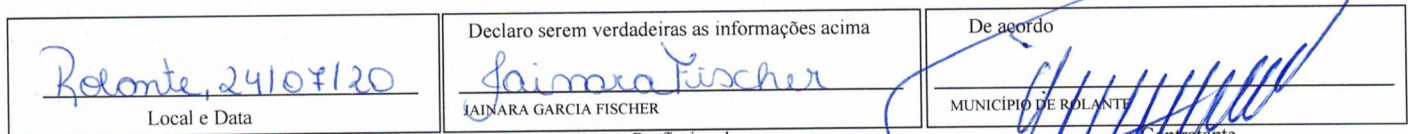 Rolante, 24/07/20
Local e Data
Declaro serem verdadeiras as informações acima
Jainara Fischer
JAINARA GARCIA FISCHER
De acordo
MUNICÍPIO DE ROLANTE
Contratante